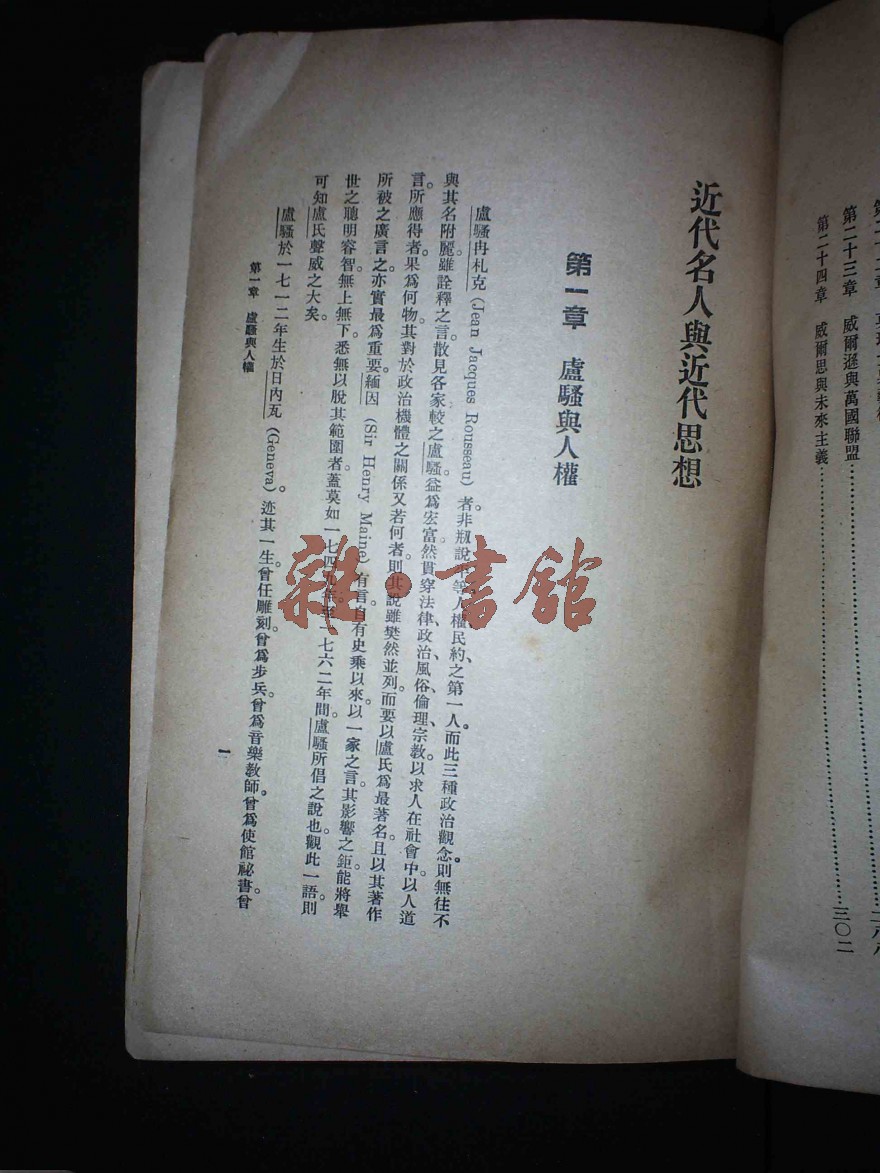 第二十三章　威爾遜與萬國聯盟
第二十四章　威爾思與未來主義……三〇二
近代名人與近代思想
第一章　盧騷與人權
盧騷冉札克 (Jean Jacques Rousseau) 者非剏說平等、人權、民約之第一人。而此三種政治觀念。則無往不
與其名附麗。雖詮釋之言。散見各家。較之盧騷。益爲宏富。然貫穿法律、政治、風俗、倫理、宗教。以求人在社會中。以人道
言。所應得者果爲何物。其對於政治機體之關係。又若何者。則其說雖樊然並列。而要以盧氏爲最著名。且以其著作
所被之廣言之。亦實最爲重要。緬因 (Sir Henry Maine) 有言。自有史乘以來。以一家之言。其影響之鉅。能將舉
世之聰明睿智。無上無下。悉無以脫其範圍者。蓋莫如一七四 七六二年間。盧騷所倡之說也。觀此一語。則
可知盧氏聲威之大矣。
盧騷於一七一二年生於日內瓦 (Geneva)。迹其一生。曾任雕刻。曾爲步兵。曾爲音樂教師。曾爲使館祕書。曾
第一章　盧騷與人權
一
雜·書館